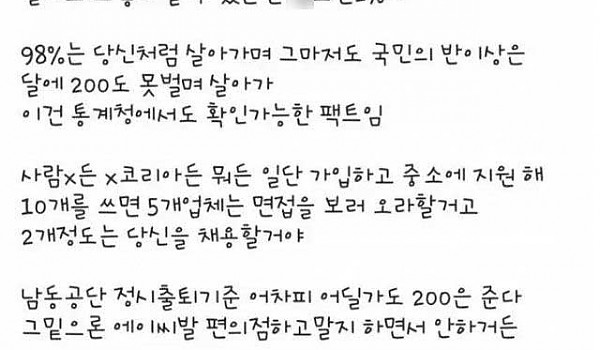 98%는 당신처럼 살아가며 그마저도 국민의 반이상은
달에 200도 못벌며 살아가
이건 통계청에서도 확인가능한 팩트임
사람x든 x코리아든 뭐든 일단 가입하고 중소에 지원 해
10개를 쓰면 5개업체는 면접을 보러 오라할거고
2개정도는 당신을 채용할거야
남동공단 정시출퇴기준 어차피 어딜가도 200은 준다
그밑으론 에이씨발 편의점하고말지 하면서 안하거든